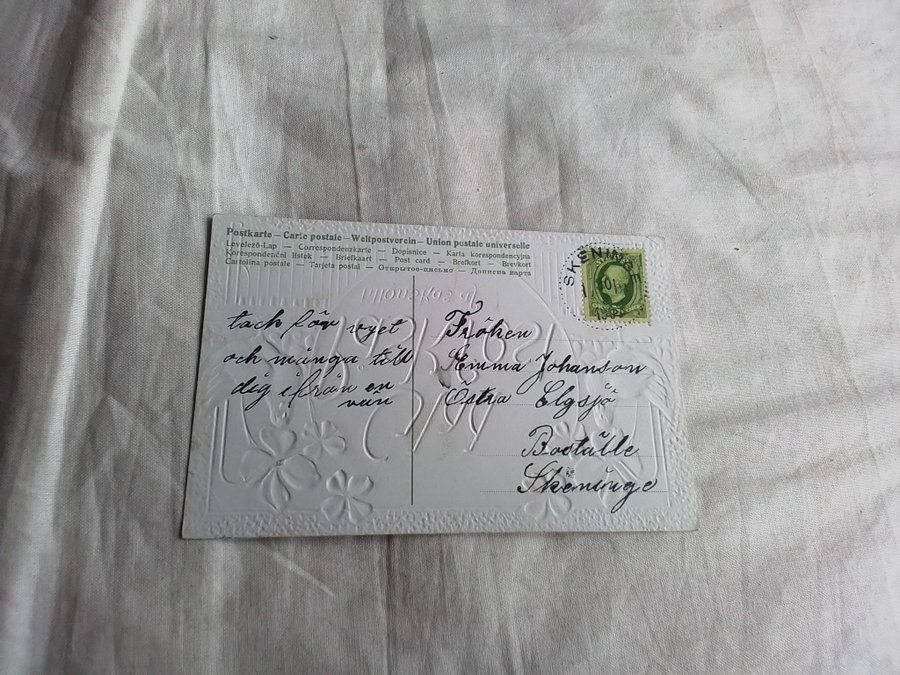 Postkarte — Carte postale — Weltpostverein — Union postale universelle
Levelező-Lap — Correspondenzkarte — Dopisnice — Karta korespondencyjna
Korespondenční lístek — Briefkaart — Post card — Brefkort — Brevkort
Cartolina postale — Tarjeta postal — Открытое письмо — Дописна карта
SKENINGE
tack för vyet
och många till
dig ifrån en
vän
Fröken
Emma Johanson
Östra Elgsjö
Boställe
Skeninge